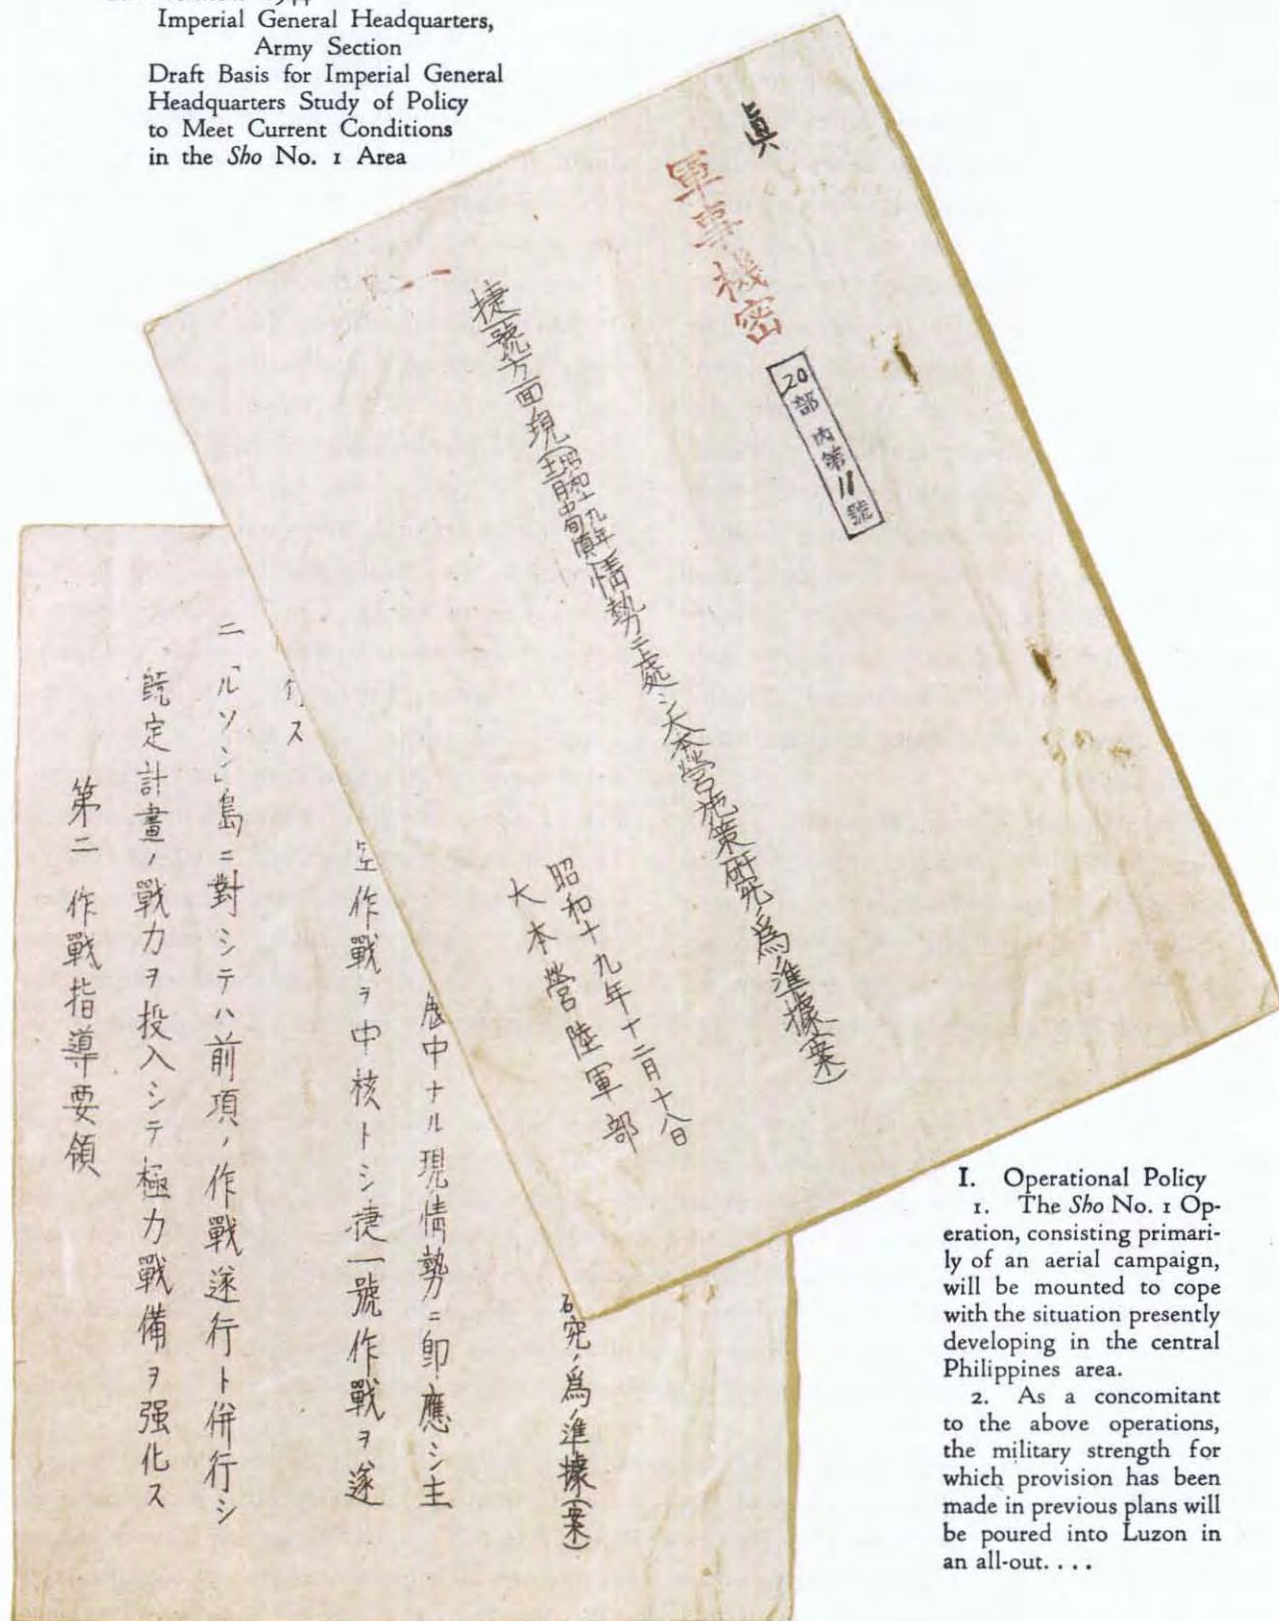 Imperial General Headquarters,
Army Section
Draft Basis for Imperial General
Headquarters Study of Policy
to Meet Current Conditions
in the Sho No. 1 Area
眞
軍事機密
20部内第11號
捷一號方面現(昭和十九年十二月中旬頃)情勢ニ處シ大本營施策研究ノ爲準據(案)
昭和十九年十二月十八日
大本營陸軍部
究ノ爲ノ準據(案)
中ナル現情勢ニ即應シ主
作戰ヲ中核トシ捷一號作戰ヲ遂
行ス
二「ルソン」島ニ對シテハ前項ノ作戰遂行ト併行シ
既定計畫ノ戰力ヲ投入シテ極力戰備ヲ强化ス
第二 作戰指導要領
I. Operational Policy
1. The Sho No. 1 Op-
eration, consisting primari-
ly of an aerial campaign,
will be mounted to cope
with the situation presently
developing in the central
Philippines area.
2. As a concomitant
to the above operations,
the military strength for
which provision has been
made in previous plans will
be poured into Luzon in
an all-out. . . .